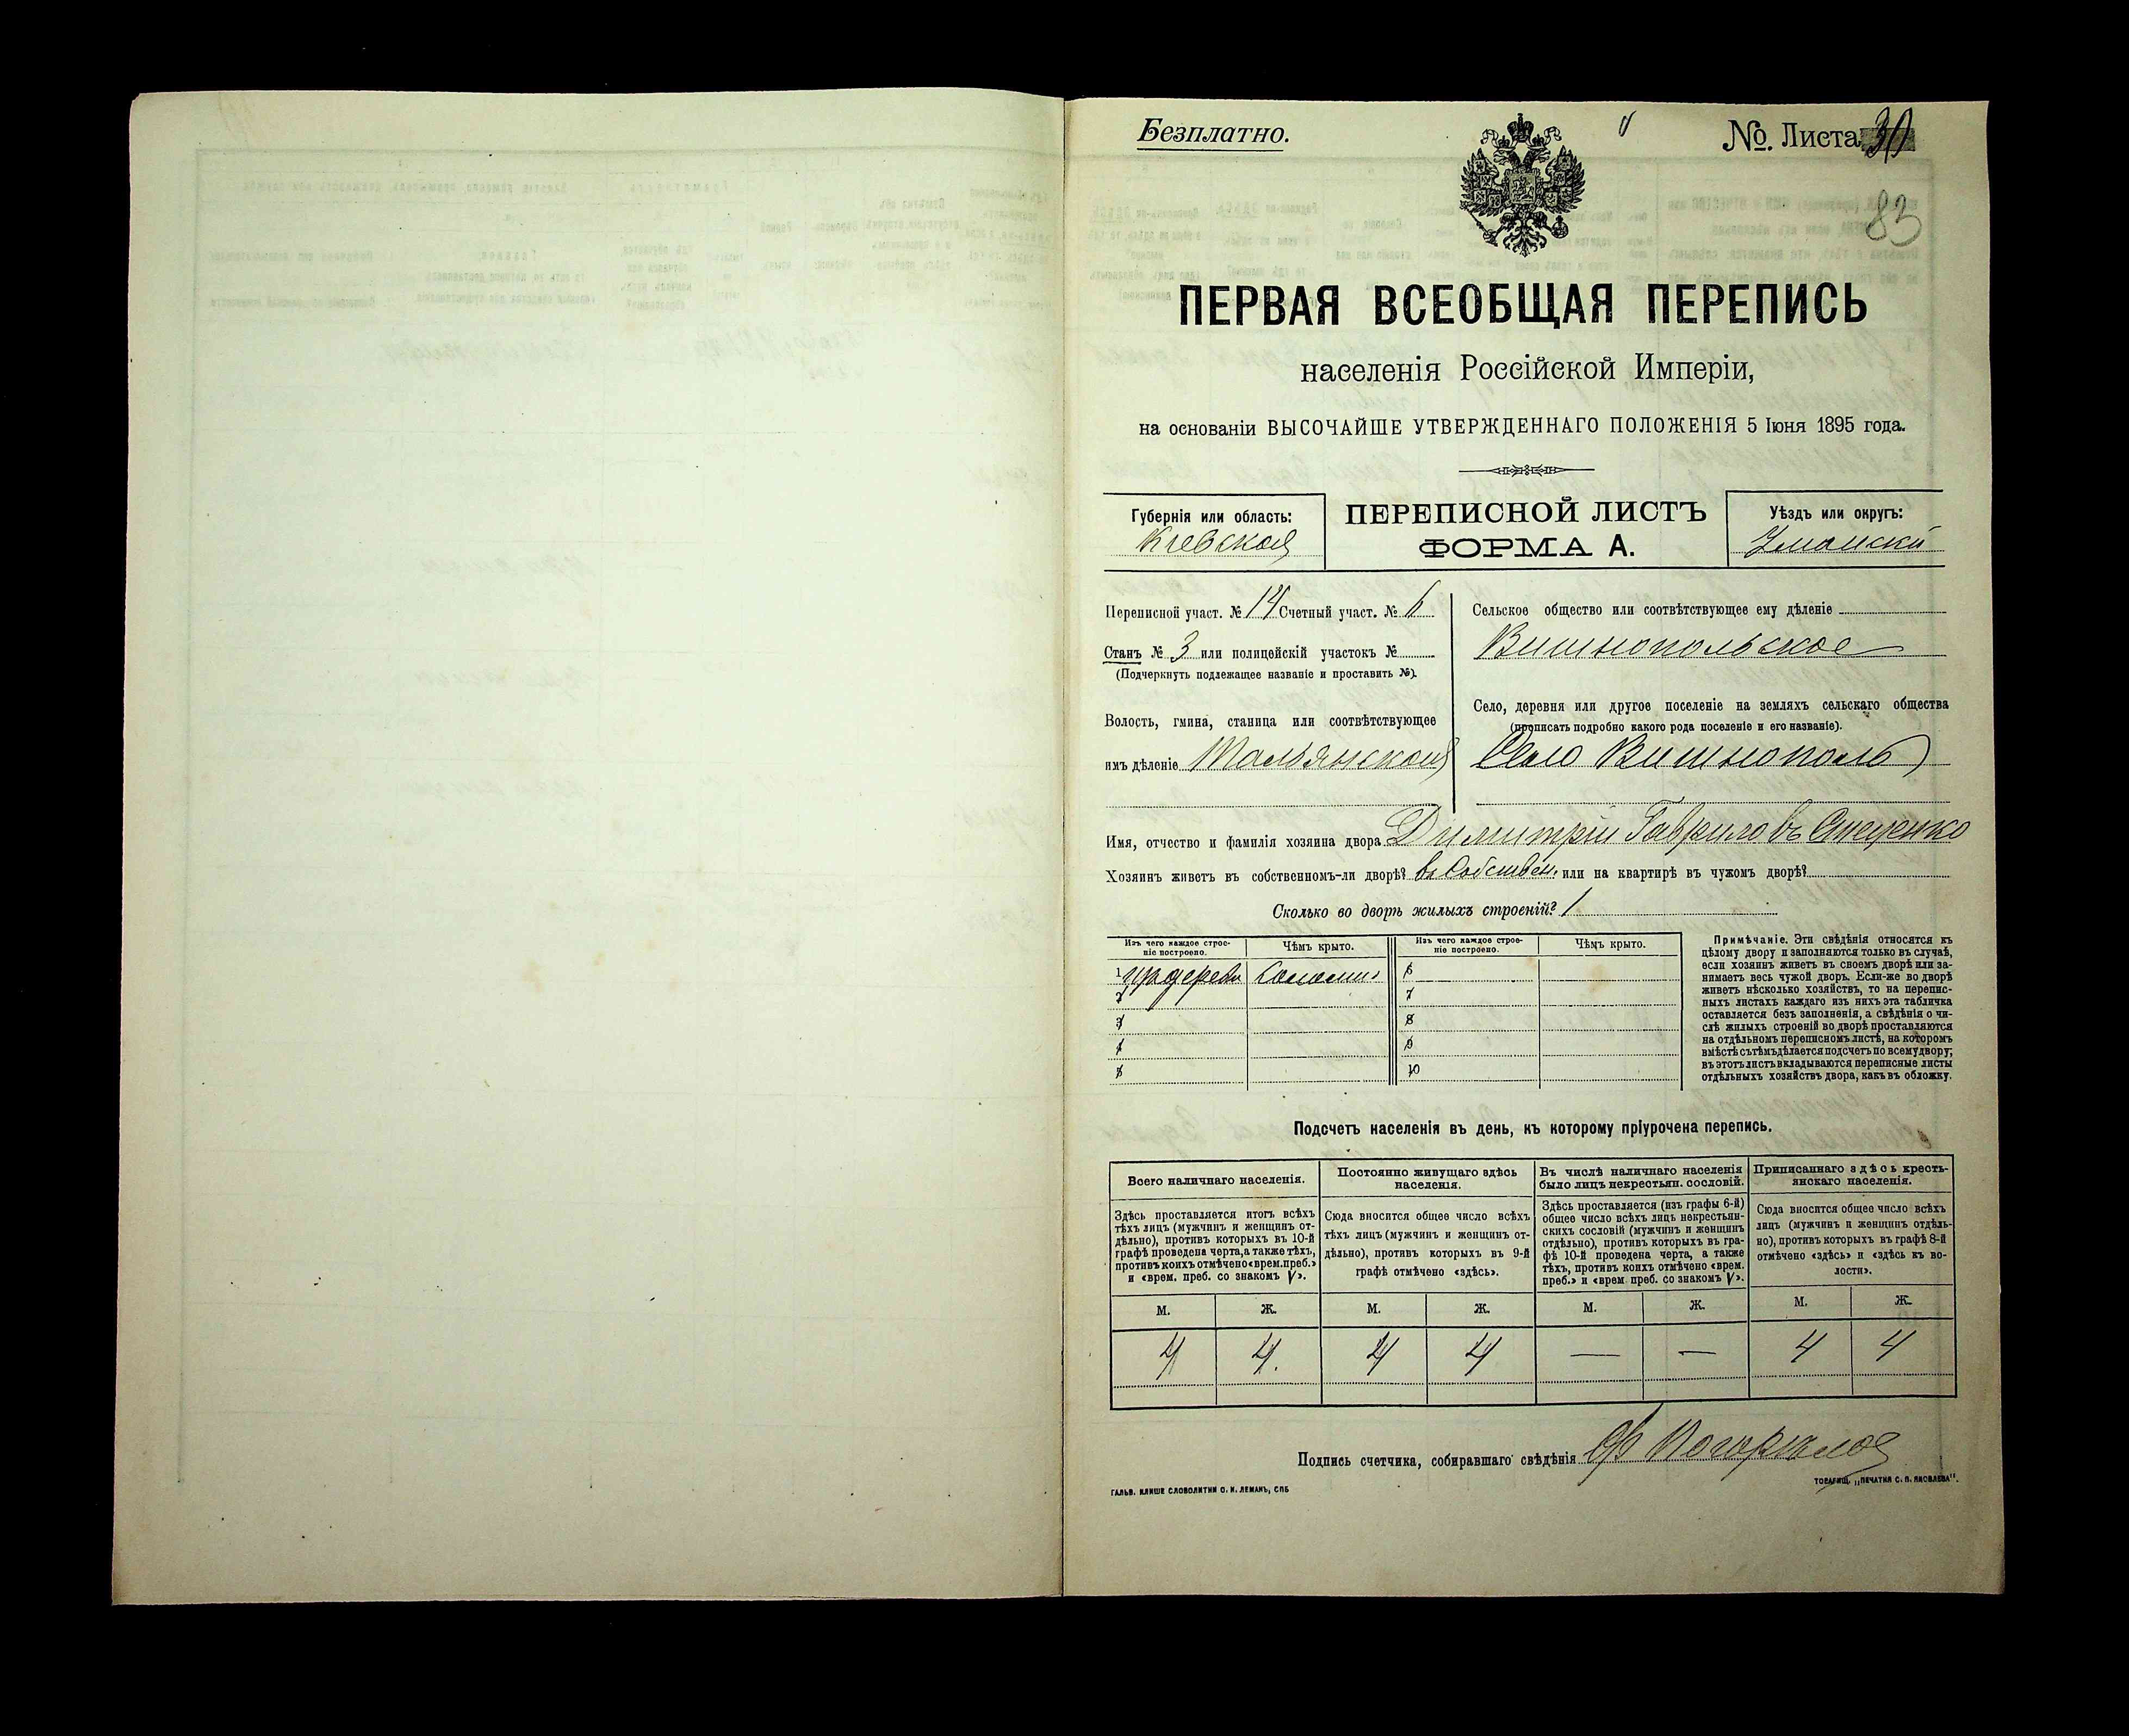 Безплатно.
№. Листа 30
83
ПЕРВАЯ ВСЕОБЩАЯ ПЕРЕПИСЬ
населенія Россійской Имперіи,
на основаніи ВЫСОЧАЙШЕ УТВЕРЖДЕННАГО ПОЛОЖЕНІЯ 5 Іюня 1895 года.
Губернія или область:
Кіевская
ПЕРЕПИСНОЙ ЛИСТЪ
ФОРМА А.
Уѣздъ или округъ:
Уманскій
Переписной участ. № 14 Счетный участ. № 6
Станъ № 3 или полицейскій участокъ №
(Подчеркнуть подлежащее названіе и проставить №).
Волость, гмина, станица или соотвѣтствующее
имъ дѣленіе Тальянская
Сельское общество или соотвѣтствующее ему дѣленіе
Вишнопольское
Село, деревня или другое поселеніе на земляхъ сельскаго общества
(прописать подробно какого рода поселеніе и его названіе).
Село Вишнополь
Имя, отчество и фамилія хозяина двора Димитрій Гавриловъ Стеценко
Хозяинъ живетъ въ собственномъ-ли дворѣ? въ Собствен. или на квартирѣ въ чужомъ дворѣ?
Сколько во дворѣ жилыхъ строеній? 1
Изъ чего каждое строе-
ніе построено.
Чѣмъ крыто.
Изъ чего каждое строе-
ніе построено.
Чѣмъ крыто.
1 дерева Соломою 6
2 7
3 8
4 9
5 10
Примѣчаніе. Эти свѣдѣнія относятся къ
цѣлому двору и заполняются только въ случаѣ,
если хозяинъ живетъ въ своемъ дворѣ или за-
нимаетъ весь чужой дворъ. Если-же во дворѣ
живетъ нѣсколько хозяйствъ, то на перепис-
ныхъ листахъ каждаго изъ нихъ эта табличка
оставляется безъ заполненія, а свѣдѣнія о чи-
слѣ жилыхъ строеній во дворѣ проставляются
на отдѣльномъ переписномъ листѣ, на которомъ
вмѣстѣ съ тѣмъ дѣлается подсчетъ по всему двору;
въ этотъ листъ вкладываются переписные листы
отдѣльныхъ хозяйствъ двора, какъ въ обложку.
Подсчетъ населенія въ день, къ которому пріурочена перепись.
Всего наличнаго населенія.
Здѣсь проставляется итогъ всѣхъ
тѣхъ лицъ (мужчинъ и женщинъ от-
дѣльно), противъ которыхъ въ 10-й
графѣ проведена черта, а также тѣхъ,
противъ коихъ отмѣчено «врем. преб.»
и «врем. преб. со знакомъ V».
Постоянно живущаго здѣсь
населенія.
Сюда вносится общее число всѣхъ
тѣхъ лицъ (мужчинъ и женщинъ от-
дѣльно), противъ которыхъ въ 9-й
графѣ отмѣчено «здѣсь».
Въ числѣ наличнаго населенія
было лицъ некрестьян. сословій.
Здѣсь проставляется (изъ графы 6-й)
общее число всѣхъ лицъ некрестьян-
скихъ сословій (мужчинъ и женщинъ
отдѣльно), противъ которыхъ въ гра-
фѣ 10-й проведена черта, а также
тѣхъ, противъ коихъ отмѣчено «врем.
преб.» и «врем. преб. со знакомъ V».
Приписаннаго здѣсь кресть-
янскаго населенія.
Сюда вносится общее число всѣхъ
лицъ (мужчинъ и женщинъ отдѣль-
но), противъ которыхъ въ графѣ 8-й
отмѣчено «здѣсь» и «здѣсь къ во-
лости».
М. Ж. М. Ж. М. Ж. М. Ж.
4 4. 4 4 — — 4 4
Подпись счетчика, собиравшаго свѣдѣнія
ГАЛЬВ. КЛИШЕ СЛОВОЛИТНИ О. И. ЛЕМАНЪ, СПБ
ТОВАРИЩ. „ПЕЧАТНЯ С. П. ЯКОВЛЕВА".